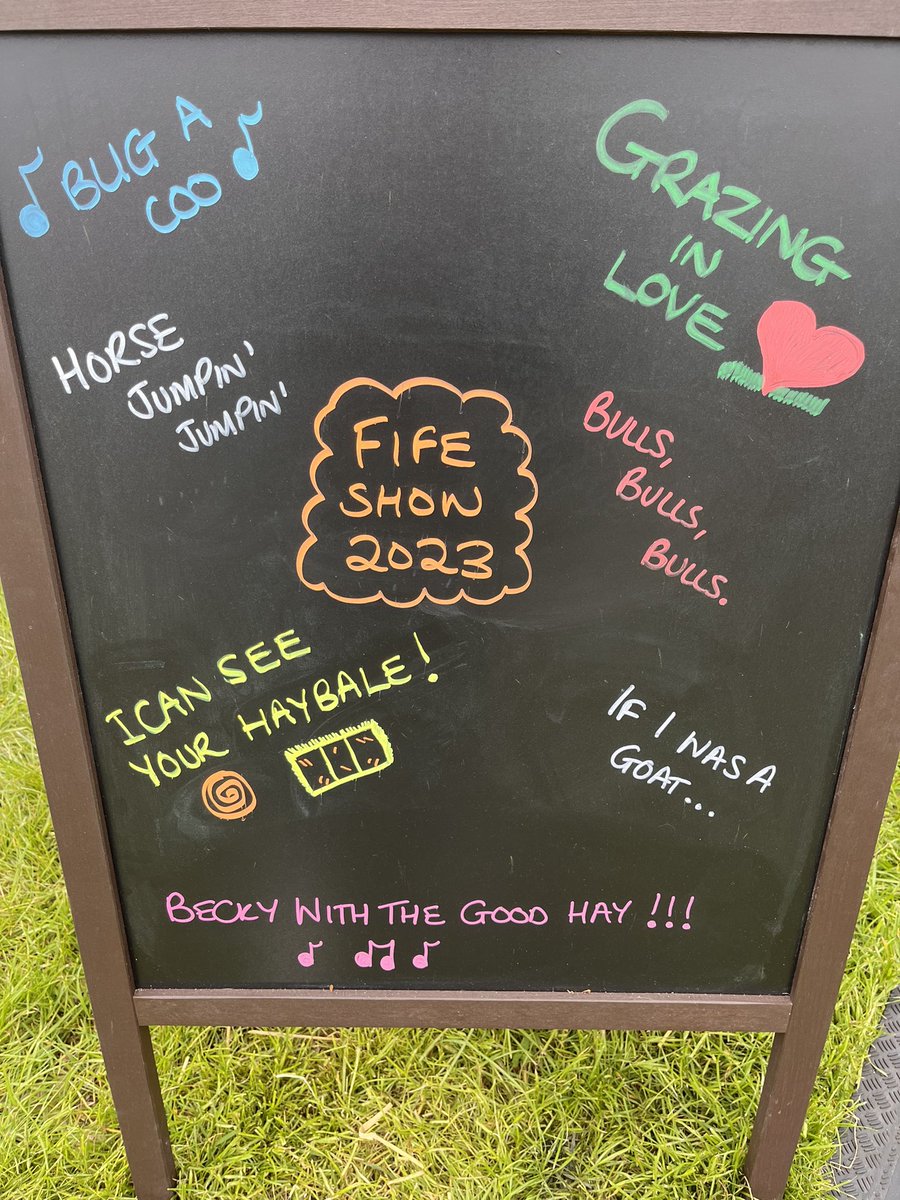 BUG A
COO
GRAZING
IN
LOVE
HORSE
JUMPIN'
JUMPIN'
FIFE
SHOW
2023
BULLS,
BULLS,
BULLS.
I CAN SEE
YOUR HAYBALE!
IF I WAS A
GOAT...
BECKY WITH THE GOOD HAY !!!